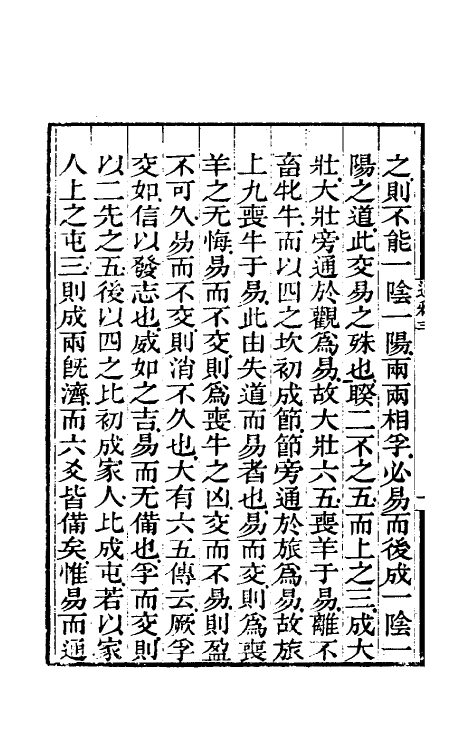 之則不能一陰一陽兩兩相孚必易而後成一陰一
陽之道此交易之殊也睽二不之五而上之三成大
壯大壯旁通於觀爲易故大壯六五喪羊于易離不
畜牝牛而以四之坎初成節節旁通於旅爲易故旅
上九喪牛于易此由失道而易者也易而交則爲喪
羊之无悔易而不交則爲喪牛之凶交而不易則盈
不可久易而不交則消不久也大有六五傳云厥孚
交如信以發志也威如之吉易而无備也孚而交則
以二先之五後以四之比初成家人比成屯若以家
人上之屯三則成兩旣濟而六爻皆備矣惟易而通